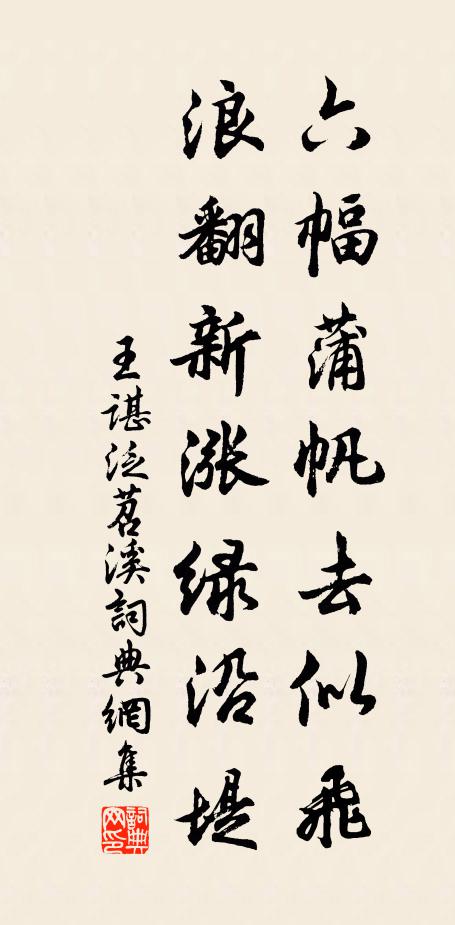 六幅蒲帆去似飛
浪翻新漲绿沿堤
王諶泛苕溪詞典網集
詞典網印